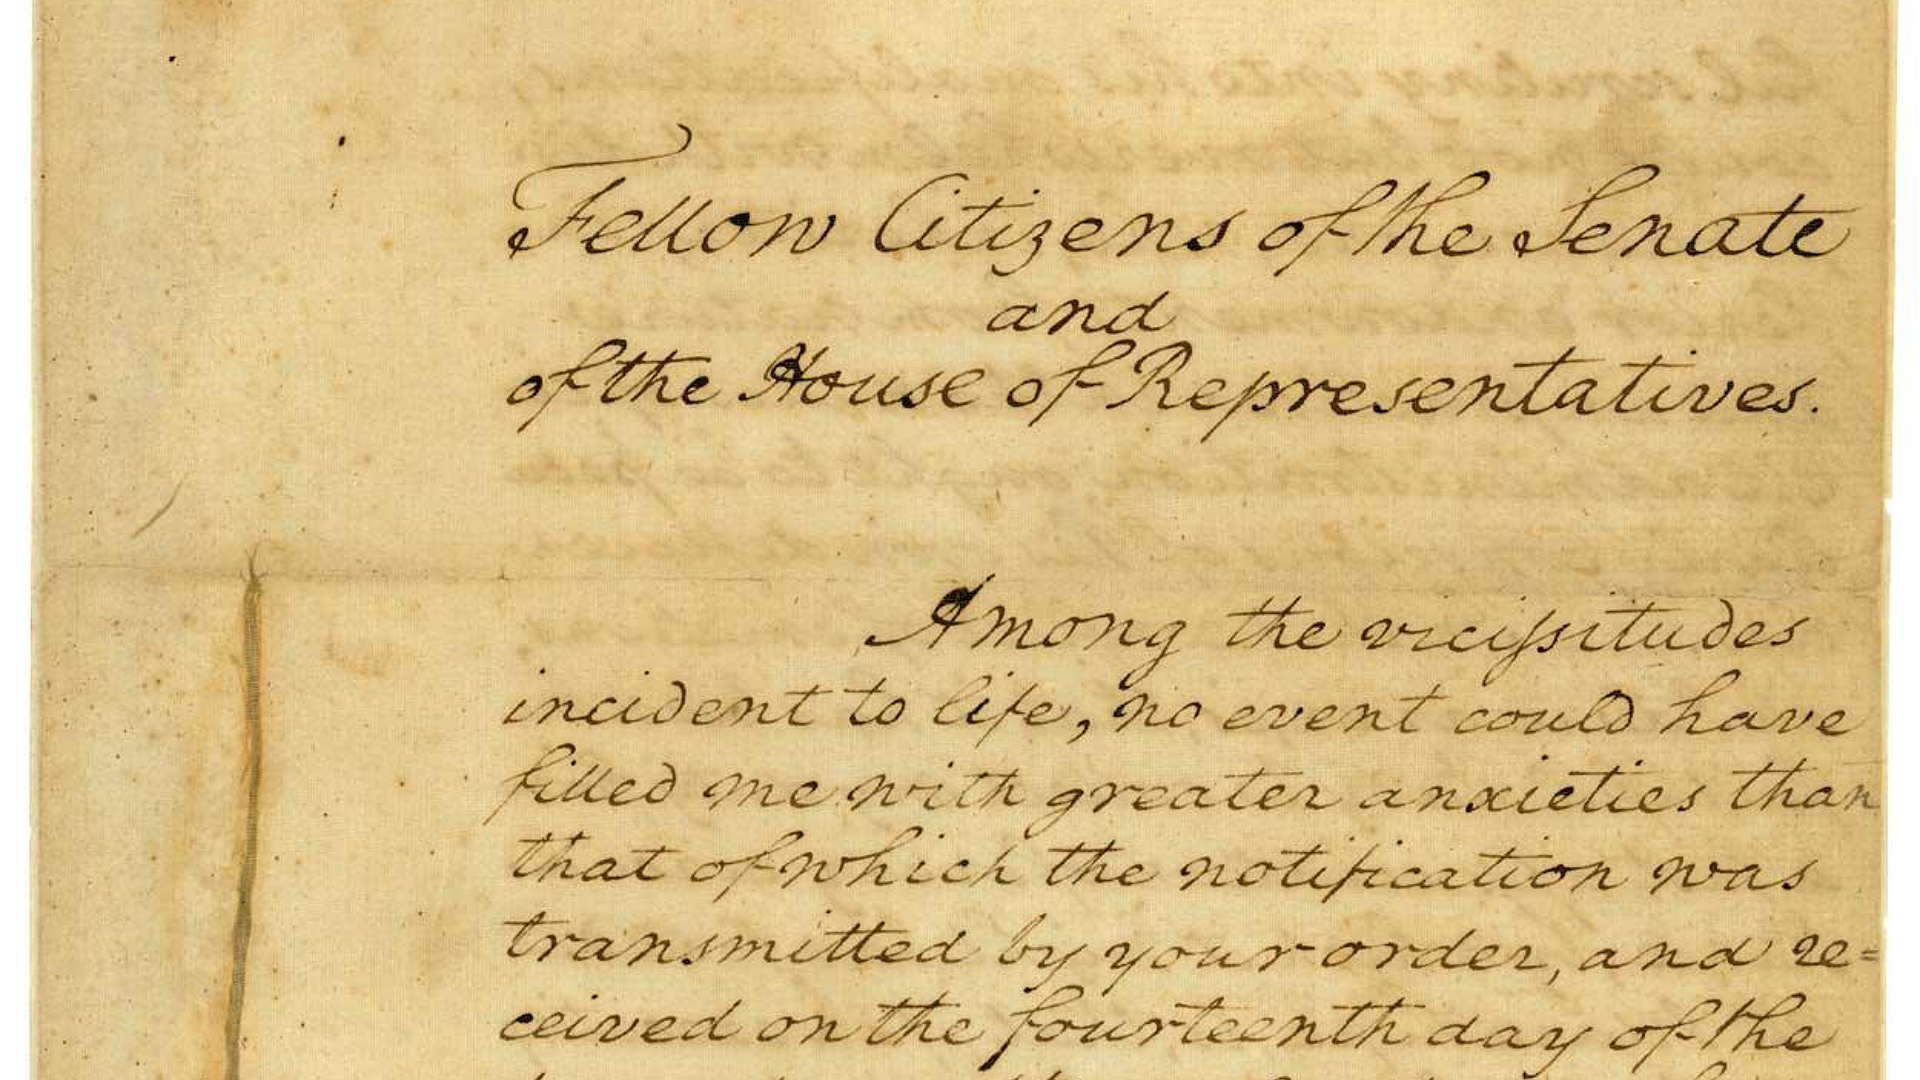 Fellow Citizens of the Senate
and
of the House of Representatives.
Among the vicissitudes
incident to life, no event could have
filled me with greater anxieties than
that of which the notification was
transmitted by your order, and re=
ceived on the fourteenth day of the